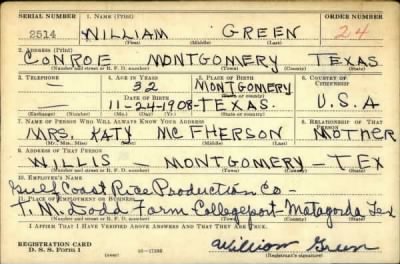 SERIAL NUMBER 1. NAME (Print) ORDER NUMBER
2514 WILLIAM GREEN 24
(First) (Middle) (Last)
2. ADDRESS (Print)
CONROE MONTGOMERY TEXAS
(Number and street or R. F. D. number) (Town) (County) (State)
3. TELEPHONE 4. AGE IN YEARS 5. PLACE OF BIRTH 6. COUNTRY OF CITIZENSHIP
— 32 MONTGOMERY
DATE OF BIRTH (Town or county)
— 11-24-1908- TEXAS. U.S.A
(Exchange) (Number) (Mo.) (Day) (Yr.) (State or country)
7. NAME OF PERSON WHO WILL ALWAYS KNOW YOUR ADDRESS 8. RELATIONSHIP OF THAT PERSON
MRS. KATY MC FHERSON MOTHER
(Mr., Mrs., Miss) (First) (Middle) (Last)
9. ADDRESS OF THAT PERSON
WILLIS MONTGOMERY - TEX
(Number and street or R. F. D. number) (Town) (County) (State)
10. EMPLOYER'S NAME
Gulf Coast Rice Production Co -
11. PLACE OF EMPLOYMENT OR BUSINESS
T. M. Dodd Farm Collegeport - Matagorda Tex
(Number and street or R. F. D. number) (Town) (County) (State)
I AFFIRM THAT I HAVE VERIFIED ABOVE ANSWERS AND THAT THEY ARE TRUE.
REGISTRATION CARD
D. S. S. Form 1 William Green
(Registrant's signature)